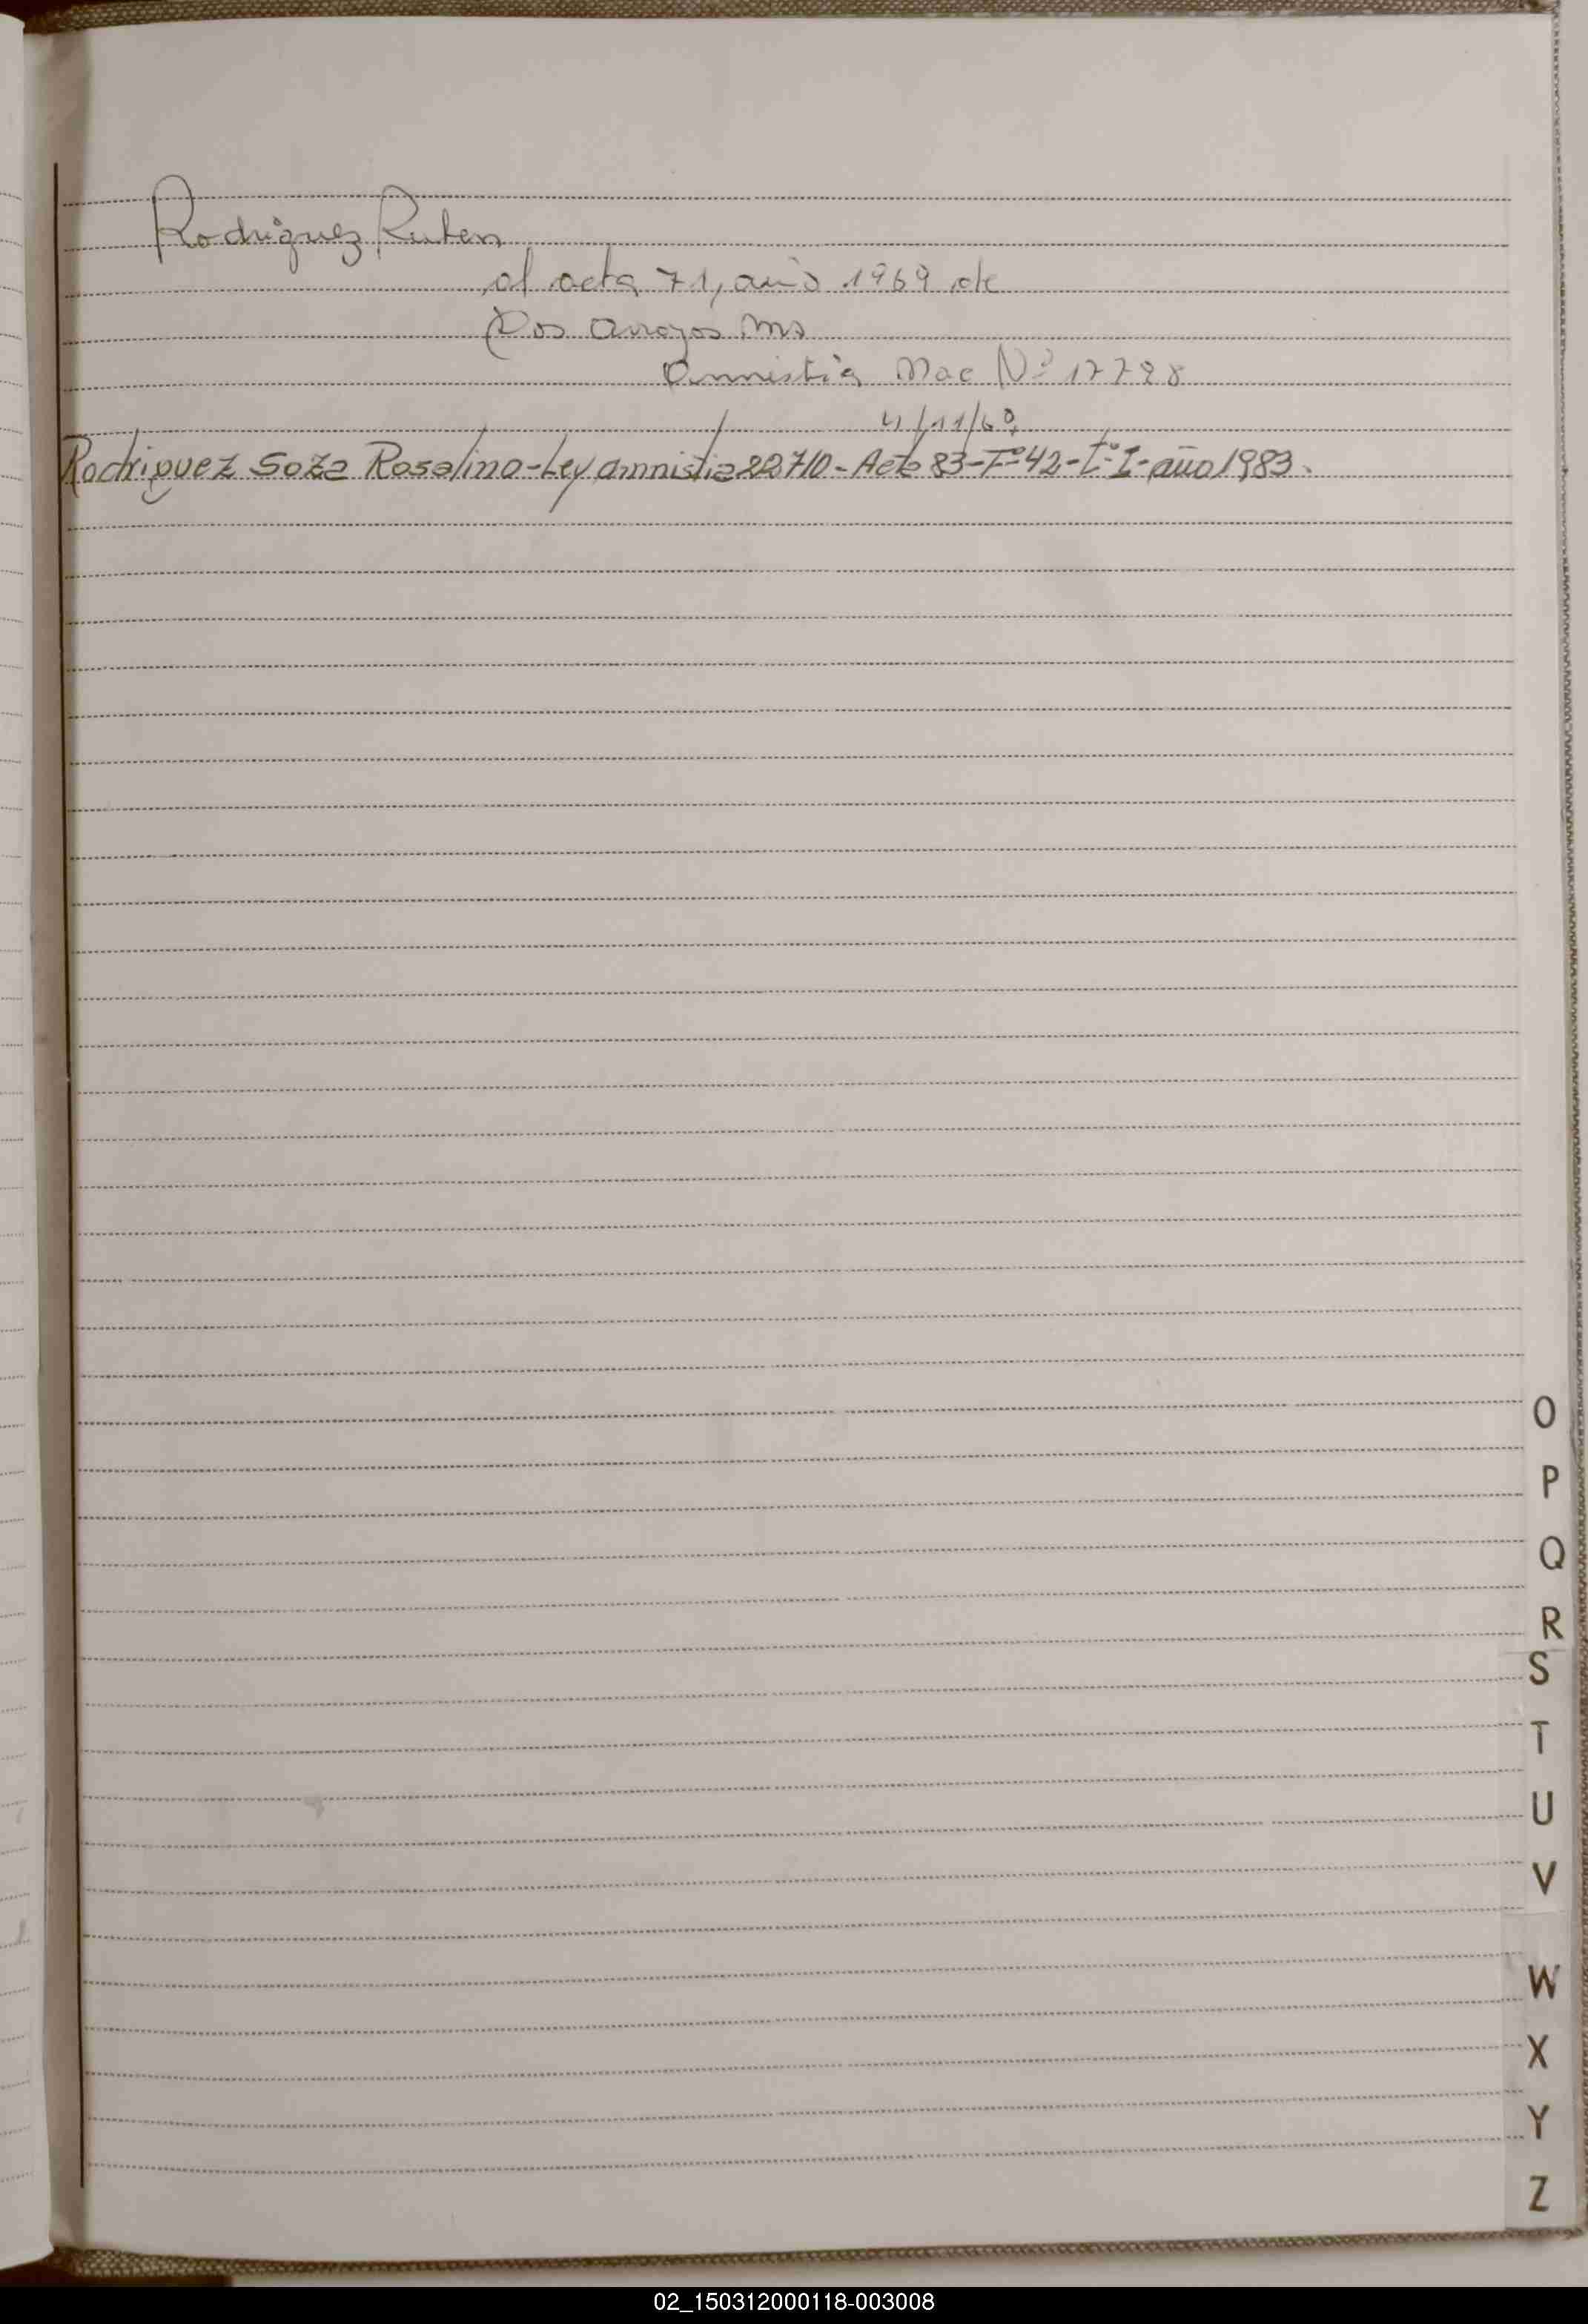 Rodriguez Ruben
al acta 71, año 1969 de
Dos Arroyos Ms
Amnistia Nac Nº 17728
4/11/69
Rodriguez Soza Rosalino-Ley amnistia 22710-Acta 83-Fº42-Tº-I-año 1983.
O
P
Q
R
S
T
U
V
W
X
Y
Z
02_150312000118-003008